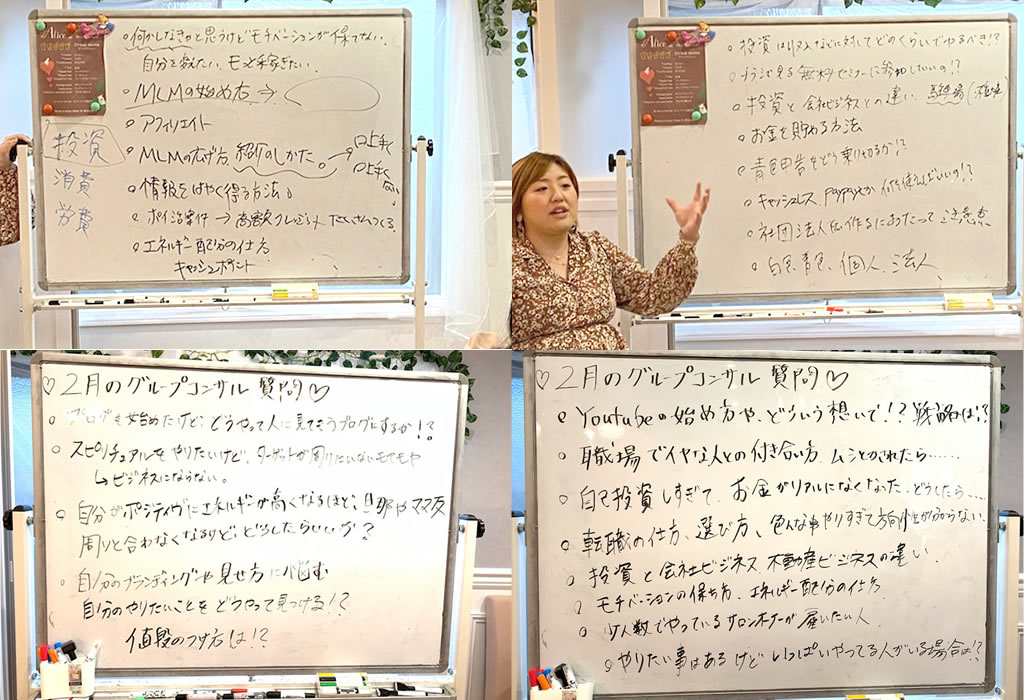 Alice
何かしなきゃと思うけどモチベーションが保てない
自分を変えたい、もっと稼ぎたい
MLMの始め方→
アフィリエイト
MLMの広げ方 紹介のしかた。→口上手く
口上手く
投資
消費
労費
情報をはやく得る方法。
ポイ活案件→高額クレジット、たくさんつくる
エネルギー配分の仕方
キャッシュポイント
Alice
投資は収入などに対してどのくらいでやるべき!?
無料セミナーに参加していいの!?
投資と会社ビジネスとの違い、
お金を貯める方法
青色申告をどう乗り切るか!?
キャッシュレス、何を使えばいいの!?
社団法人を作るにあたって注意点
白色、青色、個人、法人
♡2月のグループコンサル 質問♡
ブログを始めたけど、どうやって人に見てもらうブログにするか!?
スピリチュアルをやりたいけど、ターゲットが周りにいないモヤモヤ
↳ビジネスにならない。
自分がポジティヴにエネルギーが高くなるほど、旦那やママ友
周りと合わなくなるけど、どうしたらいいか?
自分のブランディングや見せ方に悩む
自分のやりたいことをどうやって見つける!?
値段のつけ方は!?
♡2月のグループコンサル 質問♡
Youtubeの始め方や、どういう想いで!?戦略は!?
職場でイヤな人との付き合い方、ムシとかされたら……
自己投資しすぎて、お金がリアルになくなった、どうしたら……
転職の仕方、選び方、色んな事やりすぎて方向性が分からない、
投資と会社ビジネス、不動産ビジネスの違い
モチベーションの保ち方、エネルギー配分の仕方
少人数でやっているサロンオーナーが雇いたい人
やりたい事はあるけどいっぱいやってる人がいる場合は!?